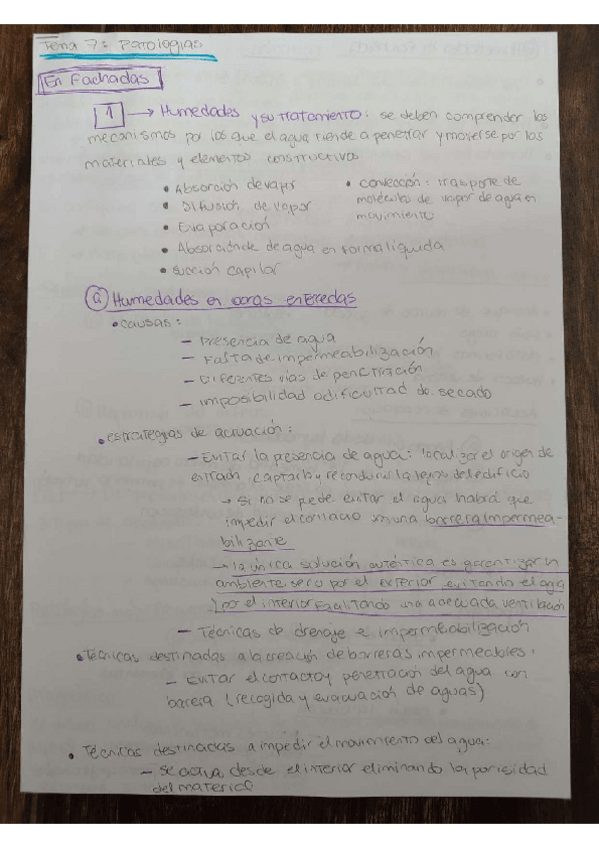 Tema 7: Patologías
En Fachadas
1 → Humedades y su tratamiento: se deben comprender los
mecanismos por los que el agua tiende a penetrar y moverse por los
materiales y elementos constructivos
• Absorción de vapor
• Difusión de vapor
• Evaporación
• Absorción de de agua en forma líquida
• Succión capilar
• Convección: trasporte de
moléculas de vapor de agua en
movimiento
a Humedades en obras enterradas
• causas:
— Presencia de agua
— Falta de impermeabilización
— Diferentes vías de penetración
— imposibilidad o dificultad de secado
• estrategias de actuación:
— Evitar la presencia de agua: localizar el origen de
entrada captarla y reconducirla lejos del edificio
→ Si no se puede evitar el agua habrá que
impedir el contacto con una barrera impermea-
bilizante
→ la única solución auténtica es garantizar un
ambiente seco por el exterior evitando el agua
y por el interior facilitando una adecuada ventilación
— Técnicas de drenaje e impermeabilización
• Técnicas destinadas a la creación de barreras impermeables:
— Evitar el contacto y penetración del agua con
barrera (recogida y evacuación de aguas)
• Técnicas destinadas a impedir el movimiento del agua:
— se actua desde el interior eliminando la porosidad
del material